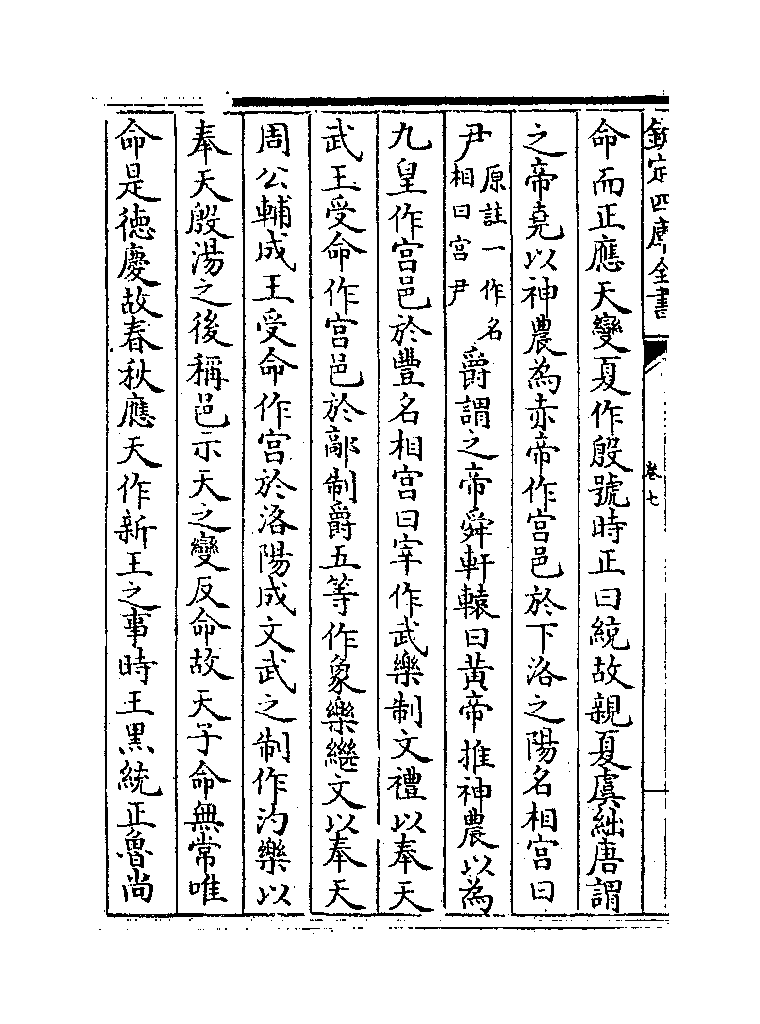 欽定四庫全書
卷七
命而正應天變夏作殷號時正曰統故親夏虞絀唐謂
之帝堯以神農為赤帝作宮邑於下洛之陽名相宮曰
尹原註一作名相曰宮尹爵謂之帝舜軒轅曰黃帝推神農以為
九皇作宮邑於豐名相宮曰宰作武樂制文禮以奉天
武王受命作宮邑於鄗制爵五等作象樂繼文以奉天
周公輔成王受命作宮於洛陽成文武之制作汋樂以
奉天殷湯之後稱邑示天之變反命故天子命無常唯
命是德慶故春秋應天作新王之事時王黑統正魯尚